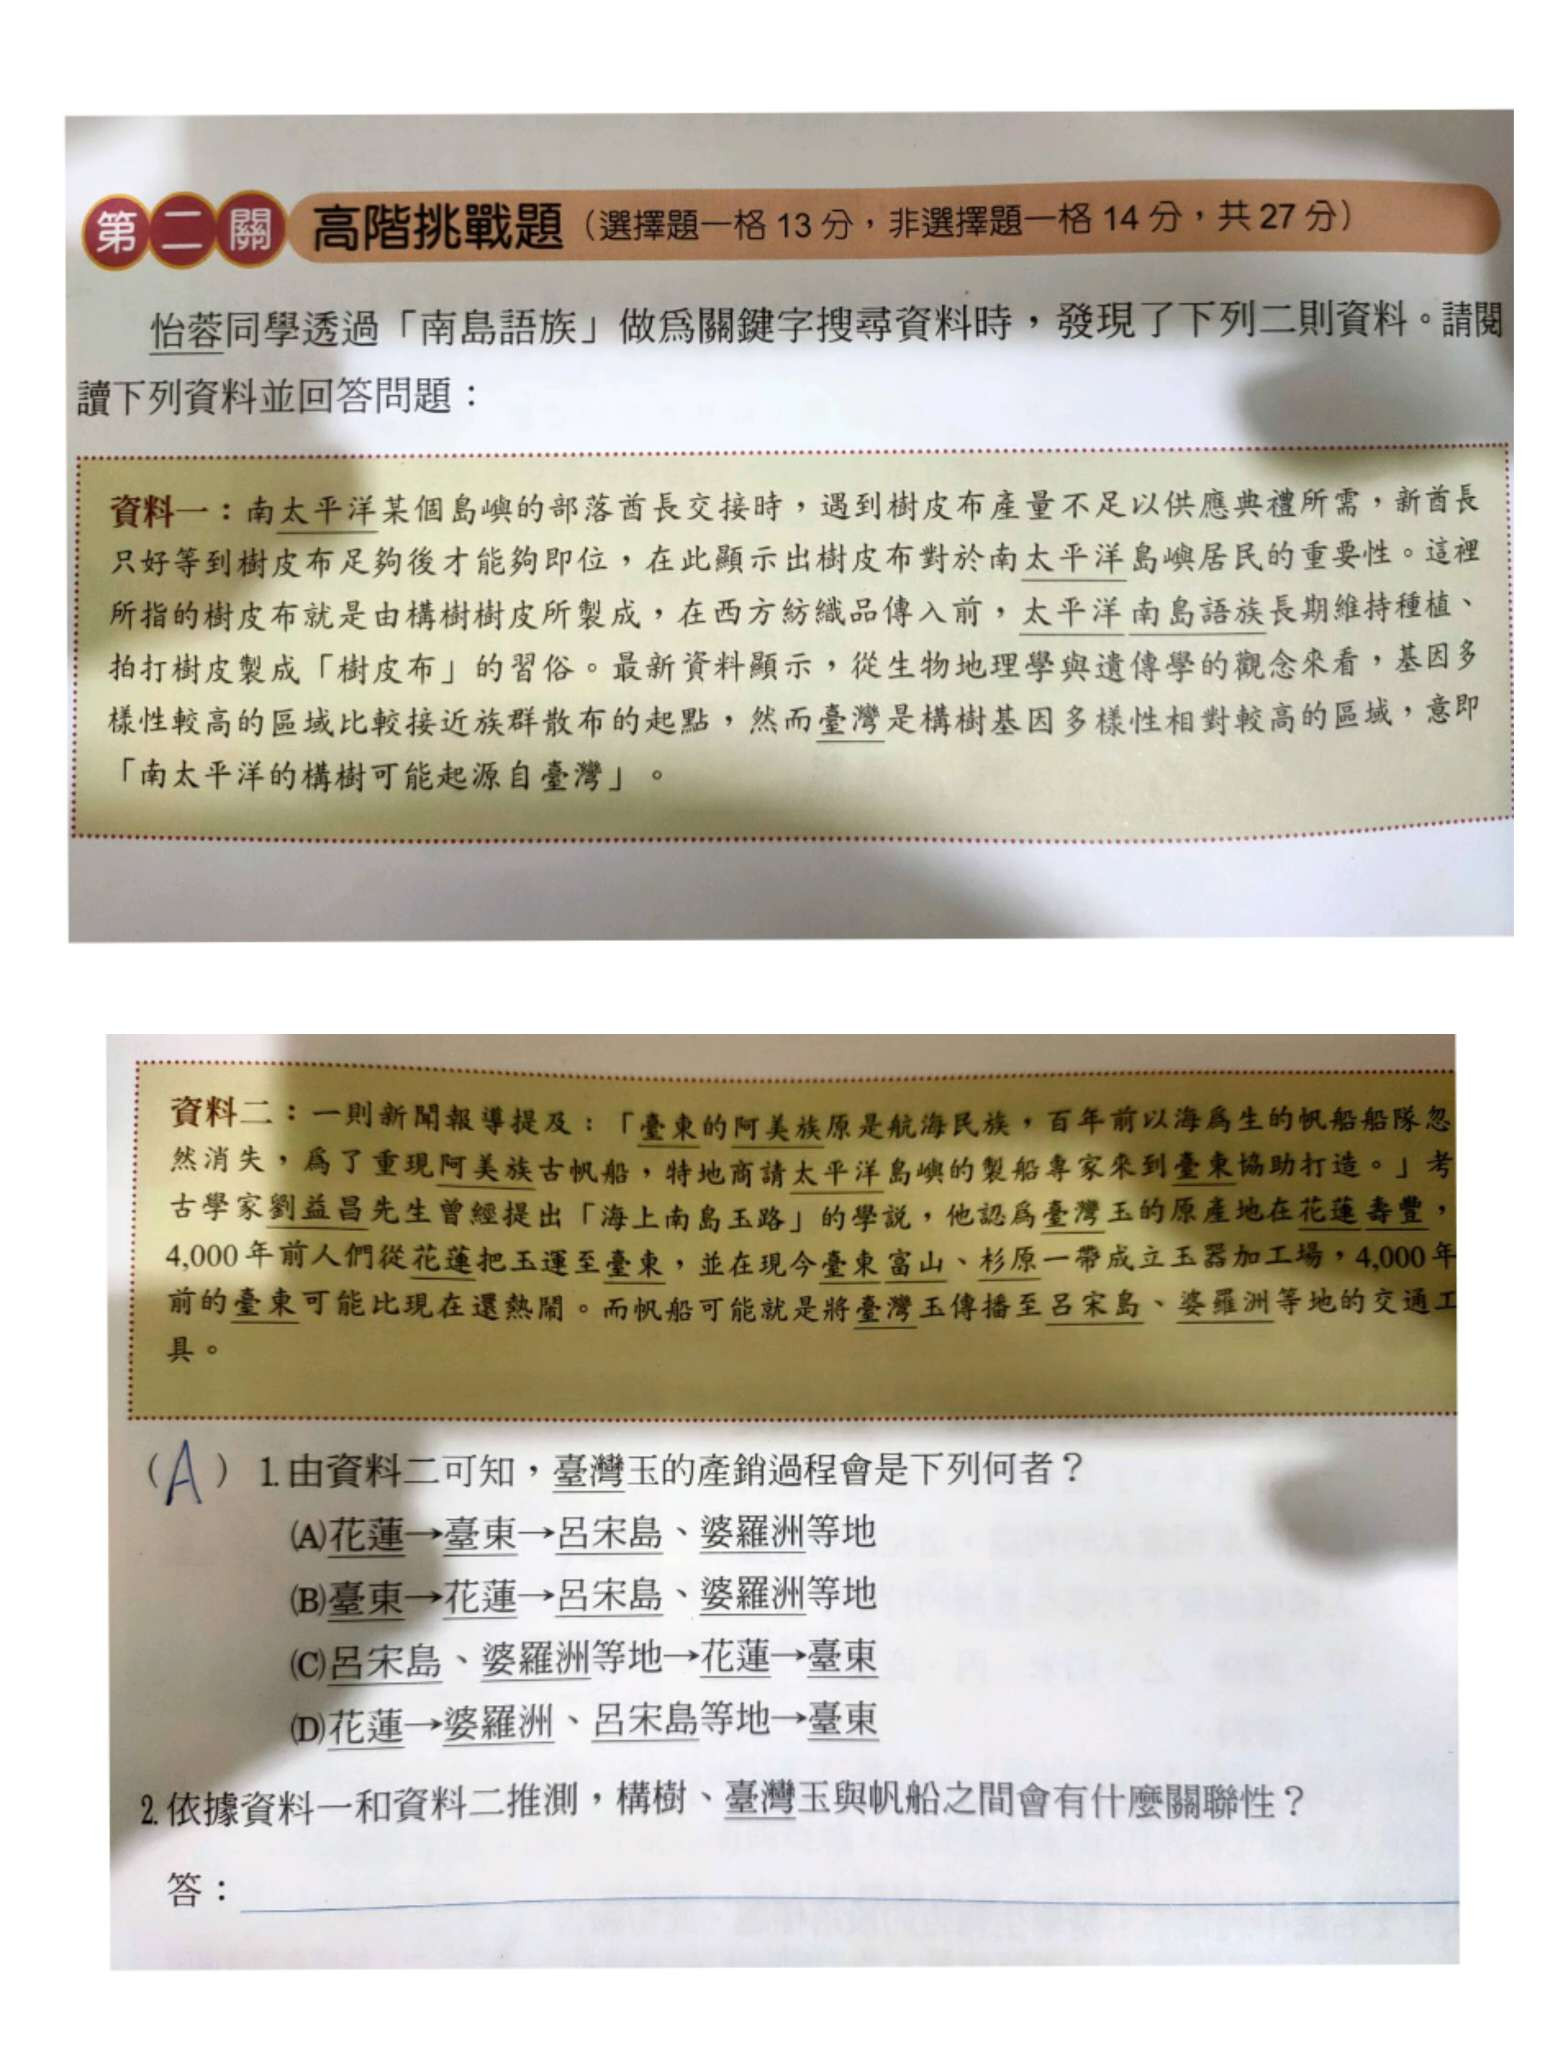 第二關 高階挑戰題（選擇題一格 13 分，非選擇題一格 14 分，共 27 分）
怡蓉同學透過「南島語族」做為關鍵字搜尋資料時，發現了下列二則資料。請閱
讀下列資料並回答問題：
資料一：南太平洋某個島嶼的部落酋長交接時，遇到樹皮布產量不足以供應典禮所需，新酋長
只好等到樹皮布足夠後才能夠即位，在此顯示出樹皮布對於南太平洋島嶼居民的重要性。這裡
所指的樹皮布就是由構樹樹皮所製成，在西方紡織品傳入前，太平洋南島語族長期維持種植、
拍打樹皮製成「樹皮布」的習俗。最新資料顯示，從生物地理學與遺傳學的觀念來看，基因多
樣性較高的區域比較接近族群散布的起點，然而臺灣是構樹基因多樣性相對較高的區域，意即
「南太平洋的構樹可能起源自臺灣」。
資料二：一則新聞報導提及：「臺東的阿美族原是航海民族，百年前以海為生的帆船船隊忽
然消失，為了重現阿美族古帆船，特地商請太平洋島嶼的製船專家來到臺東協助打造。」考
古學家劉益昌先生曾經提出「海上南島玉路」的學說，他認為臺灣玉的原產地在花蓮壽豐，
4,000 年前人們從花蓮把玉運至臺東，並在現今臺東富山、杉原一帶成立玉器加工場，4,000 年
前的臺東可能比現在還熱鬧。而帆船可能就是將臺灣玉傳播至呂宋島、婆羅洲等地的交通工
具。
（A）1.由資料二可知，臺灣玉的產銷過程會是下列何者？
(A)花蓮→臺東→呂宋島、婆羅洲等地
(B)臺東→花蓮→呂宋島、婆羅洲等地
(C)呂宋島、婆羅洲等地→花蓮→臺東
(D)花蓮→婆羅洲、呂宋島等地→臺東
2.依據資料一和資料二推測，構樹、臺灣玉與帆船之間會有什麼關聯性？
答：